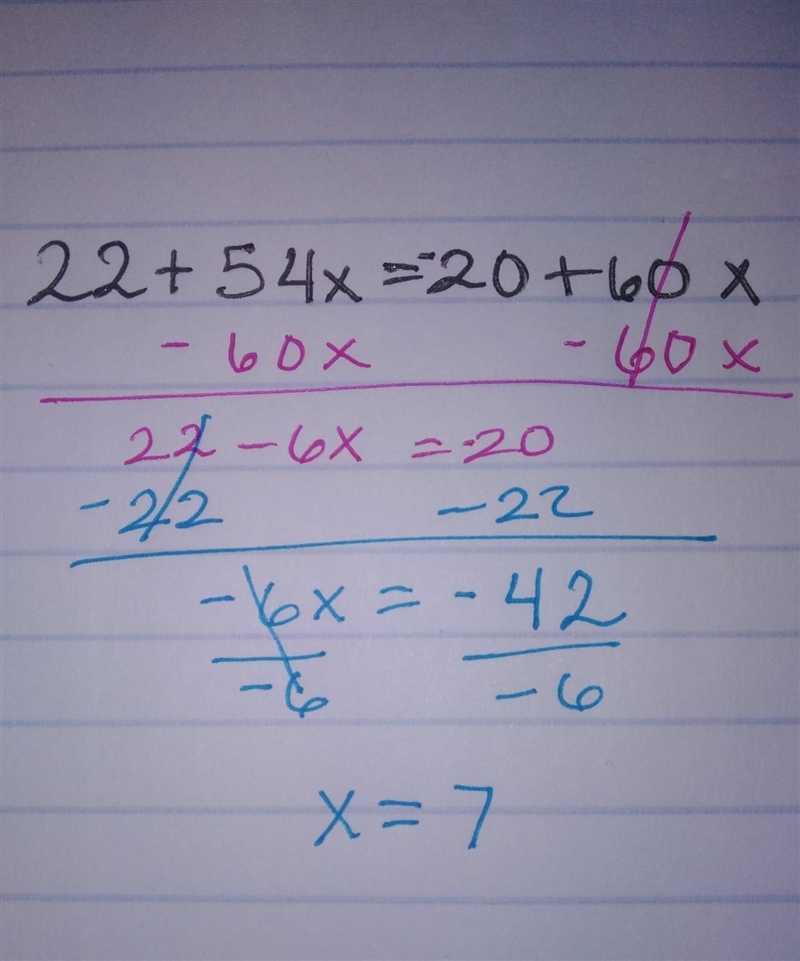 22 + 54x = -20 + 60x
- 60x - 60x
22 - 6x = -20
- 22 - 22
- 6x = - 42
- 6 - 6
x = 7